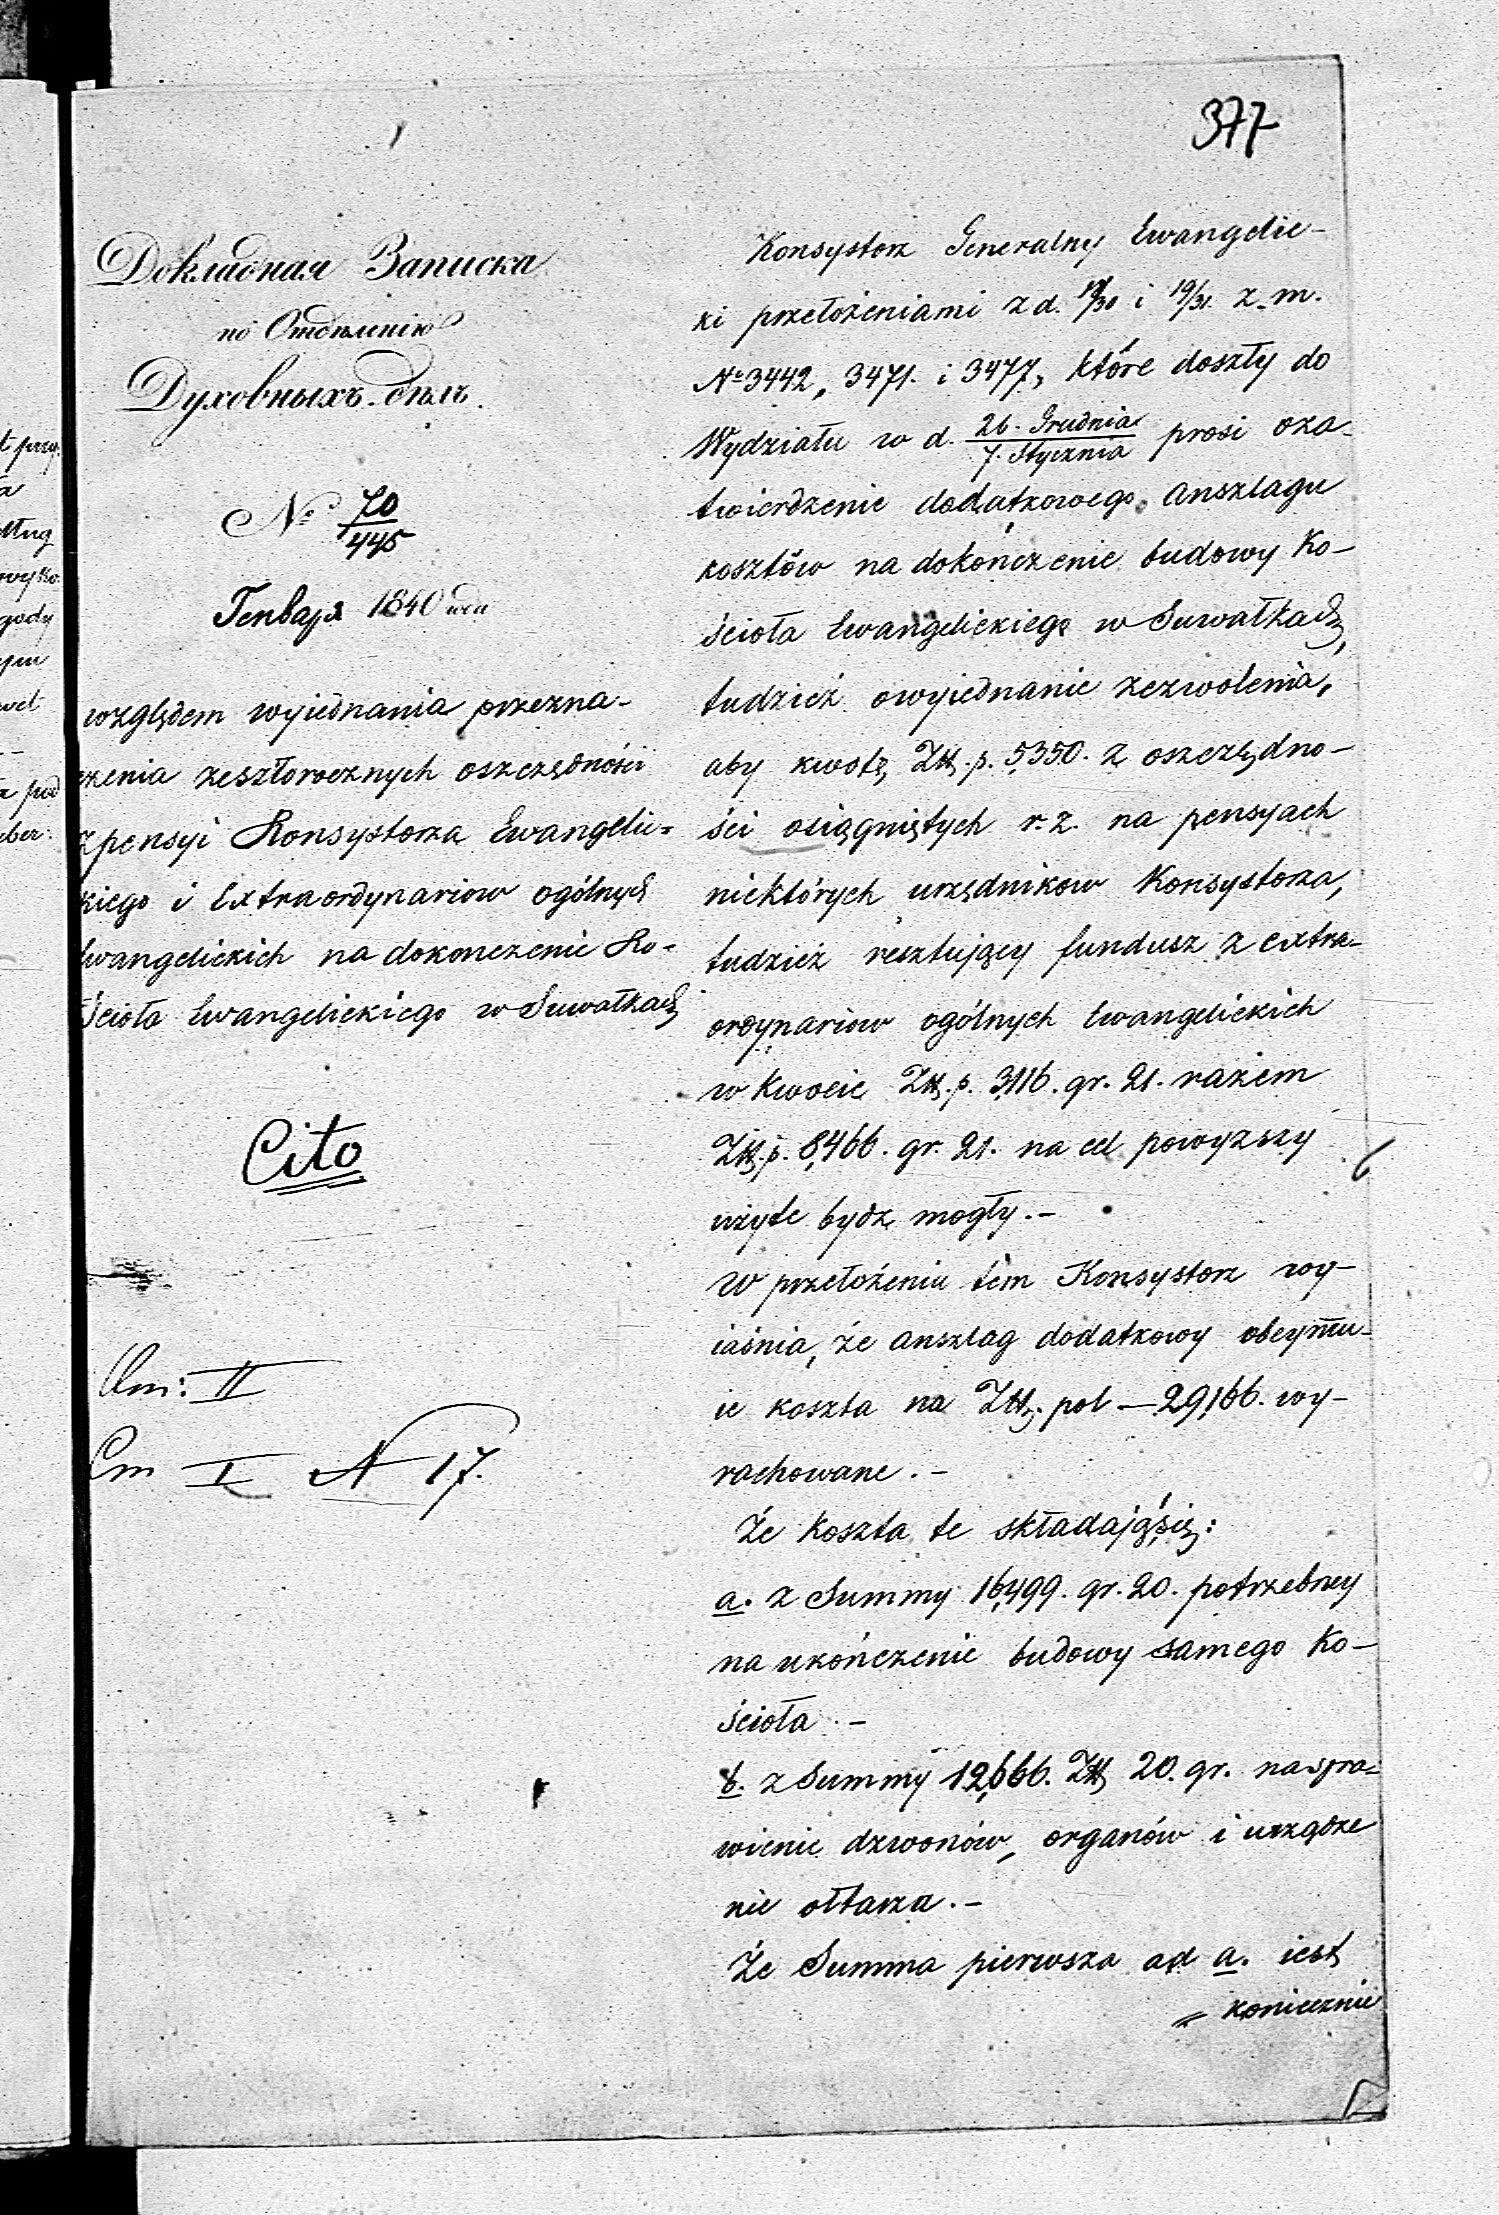 377
Докладная Записка
по Отдѣленію
Духовныхъ дѣлъ.
№ 70/445
Генваря 1840 года
względem wyiednania przezna-
czenia zeszłorocznych oszczędności
z pensyi Konsystorza Ewangelic-
kiego i Extraordynariow ogólnych
Ewangelickich na dokonczenie Ko-
ścioła Ewangelickiego w Suwałkach
Cito
II
I N 17.
Konsystorz Generalny Ewangelic-
ki przełożeniami z d. 18/30 i 19/31. z. m.
No 3442, 3471. i 3477, które doszły do
Wydziału w d. 26. Grudnia/7. Stycznia prosi oza-
twierdzenie dodatkowego anszlagu
kosztów na dokończenie budowy Ko-
ścioła Ewangelickiego w Suwałkach,
tudzież owyiednanie zezwolenia,
aby kwotę Zł. p. 5,350. z oszczędno-
ści osiągniętych r. z. na pensyach
niektórych urzędnikow Konsystorza,
tudzież resztujący fundusz z extra-
ordynariow ogólnych Ewangelickich
w kwocie Zł. p. 3,116. gr. 21. razem
Zł. p. 8,466. gr. 21. na cel powyzszy
użyte bydz mogły.-
W przełożeniu tem Konsystorz wy-
iaśnia, że anszlag dodatkowy obeymu-
ie koszta na Zł. pol - 29,166. wy-
rachowane.-
Że koszta te składają się:
a. z Summy 16,499. gr. 20. potrzebney
na ukończenie budowy samego Ko-
ścioła -
b. z Summy 12,666. Zł 20. gr. na spra-
wienie dzwonów, organów i urządze
nie ołtarza.-
Że Summa pierwsza ad a. iest
koniecznie